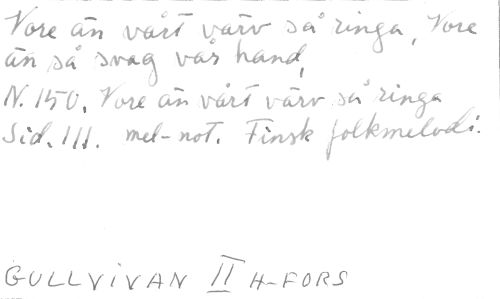 Vore än vårt värv så ringa, Vore
än så svag vår hand,
N. 150. Vore än vårt värv så ringa
Sid. 111. mel-not. Finsk folkmelodi.
GULLVIVAN II H-FORS